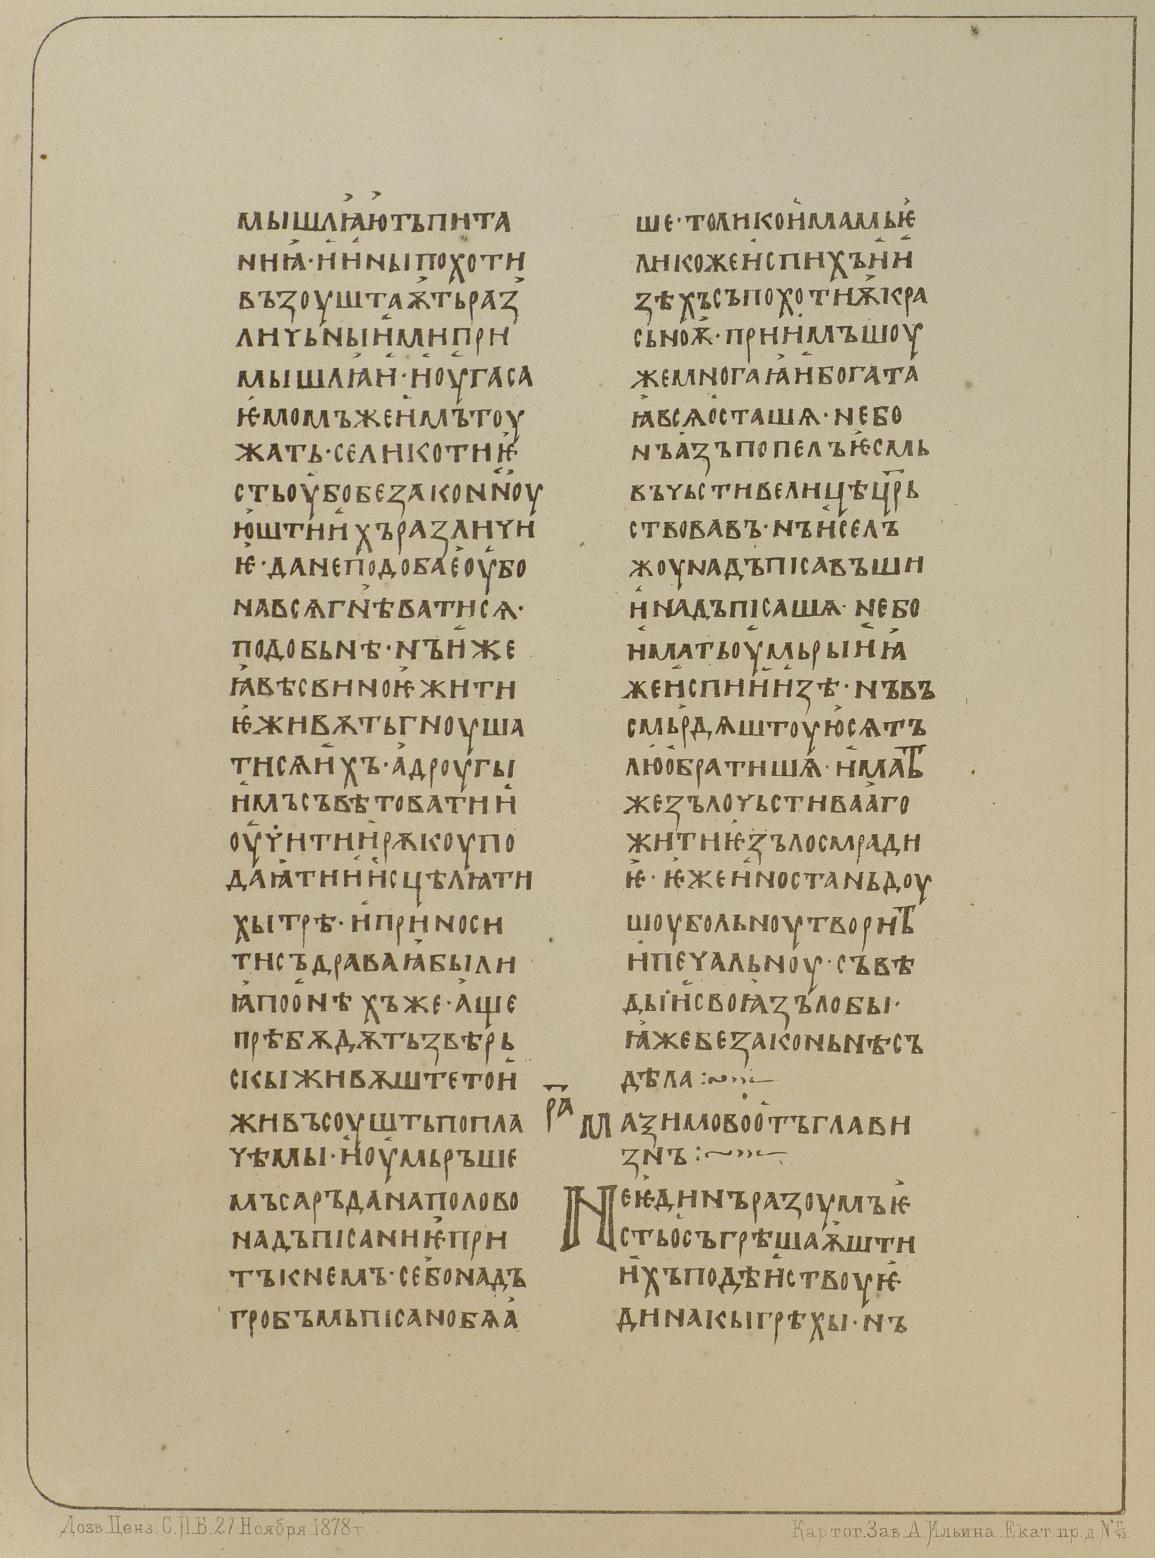 мышлꙗютъпита
ниꙗ·ииныпохоти
въꙁоуштаѫтьраꙁ
личьныимипри
мышлꙗи·иоугаса
ѥмомъжеимътоу
жать·селикотиѥ
стьоубобеꙁаконноу
юштиихъраꙁличи
ѥ·данеподобаеоубо
навсѧгнѣватисѧ·
подобьнѣ·нъиже
ꙗвѣсвиноѥжити
ѥживѫтьгноуша
тисѧихъ·адроугы
имъсъвѣтоватии
оучитиирѫкоупо
даꙗтииисцѣлꙗти
хытрѣ·ипринoси
тисъдраваꙗбыли
ꙗпоонѣхъже·аще
прѣбѫдѫтьꙁвѣрь
скыживѫштетои
живъсоуштьпопла
чѣмы·иоумьръше
мъсаръданаполово
надъпісаниѥпри
тъкнемъ·себонадъ
гробъмьпісанобѧа
ше·толикоимамьѥ
ликожеиспихъии
ꙁѣхъсъпохотиѭкра
сьноѭ·приимъшоу
жемногаꙗибогата
ꙗвсѧосташѧ·небо
нъаꙁъпопелъѥсмь
въчьстивелицѣцр҃ь
ствовавъ·нъиселъ
жоунадъпісавъши
инадъпісашѧ·небо
иматьоумьрыиꙗ
жеиспииꙁѣ·нъвъ
смьрдѧштоуюсѧтъ
люобратишѧ·имать
жеꙁълочьстиваaго
житиѥꙁълосмради
ѥ·ѥжеиностаньдоу
шоубольноутворить
ипечальноу·съвѣ
дыисвоꙗꙁълобы·
ꙗжебеꙁаконьнѣсъ
дѣла:~
р҃а маꙁимовоотъглави
ꙁнъ:~
неѥдинъраꙁоумъѥ
стьосъгрѣшаѭшти
ихъподѣиствоуѥ
динакыгрѣхы·нъ
Дозв. Ценз. С.П.Б. 27 Ноября 1878 г.
Картог. Зав. А. Ильина. Екат. пр. д. №